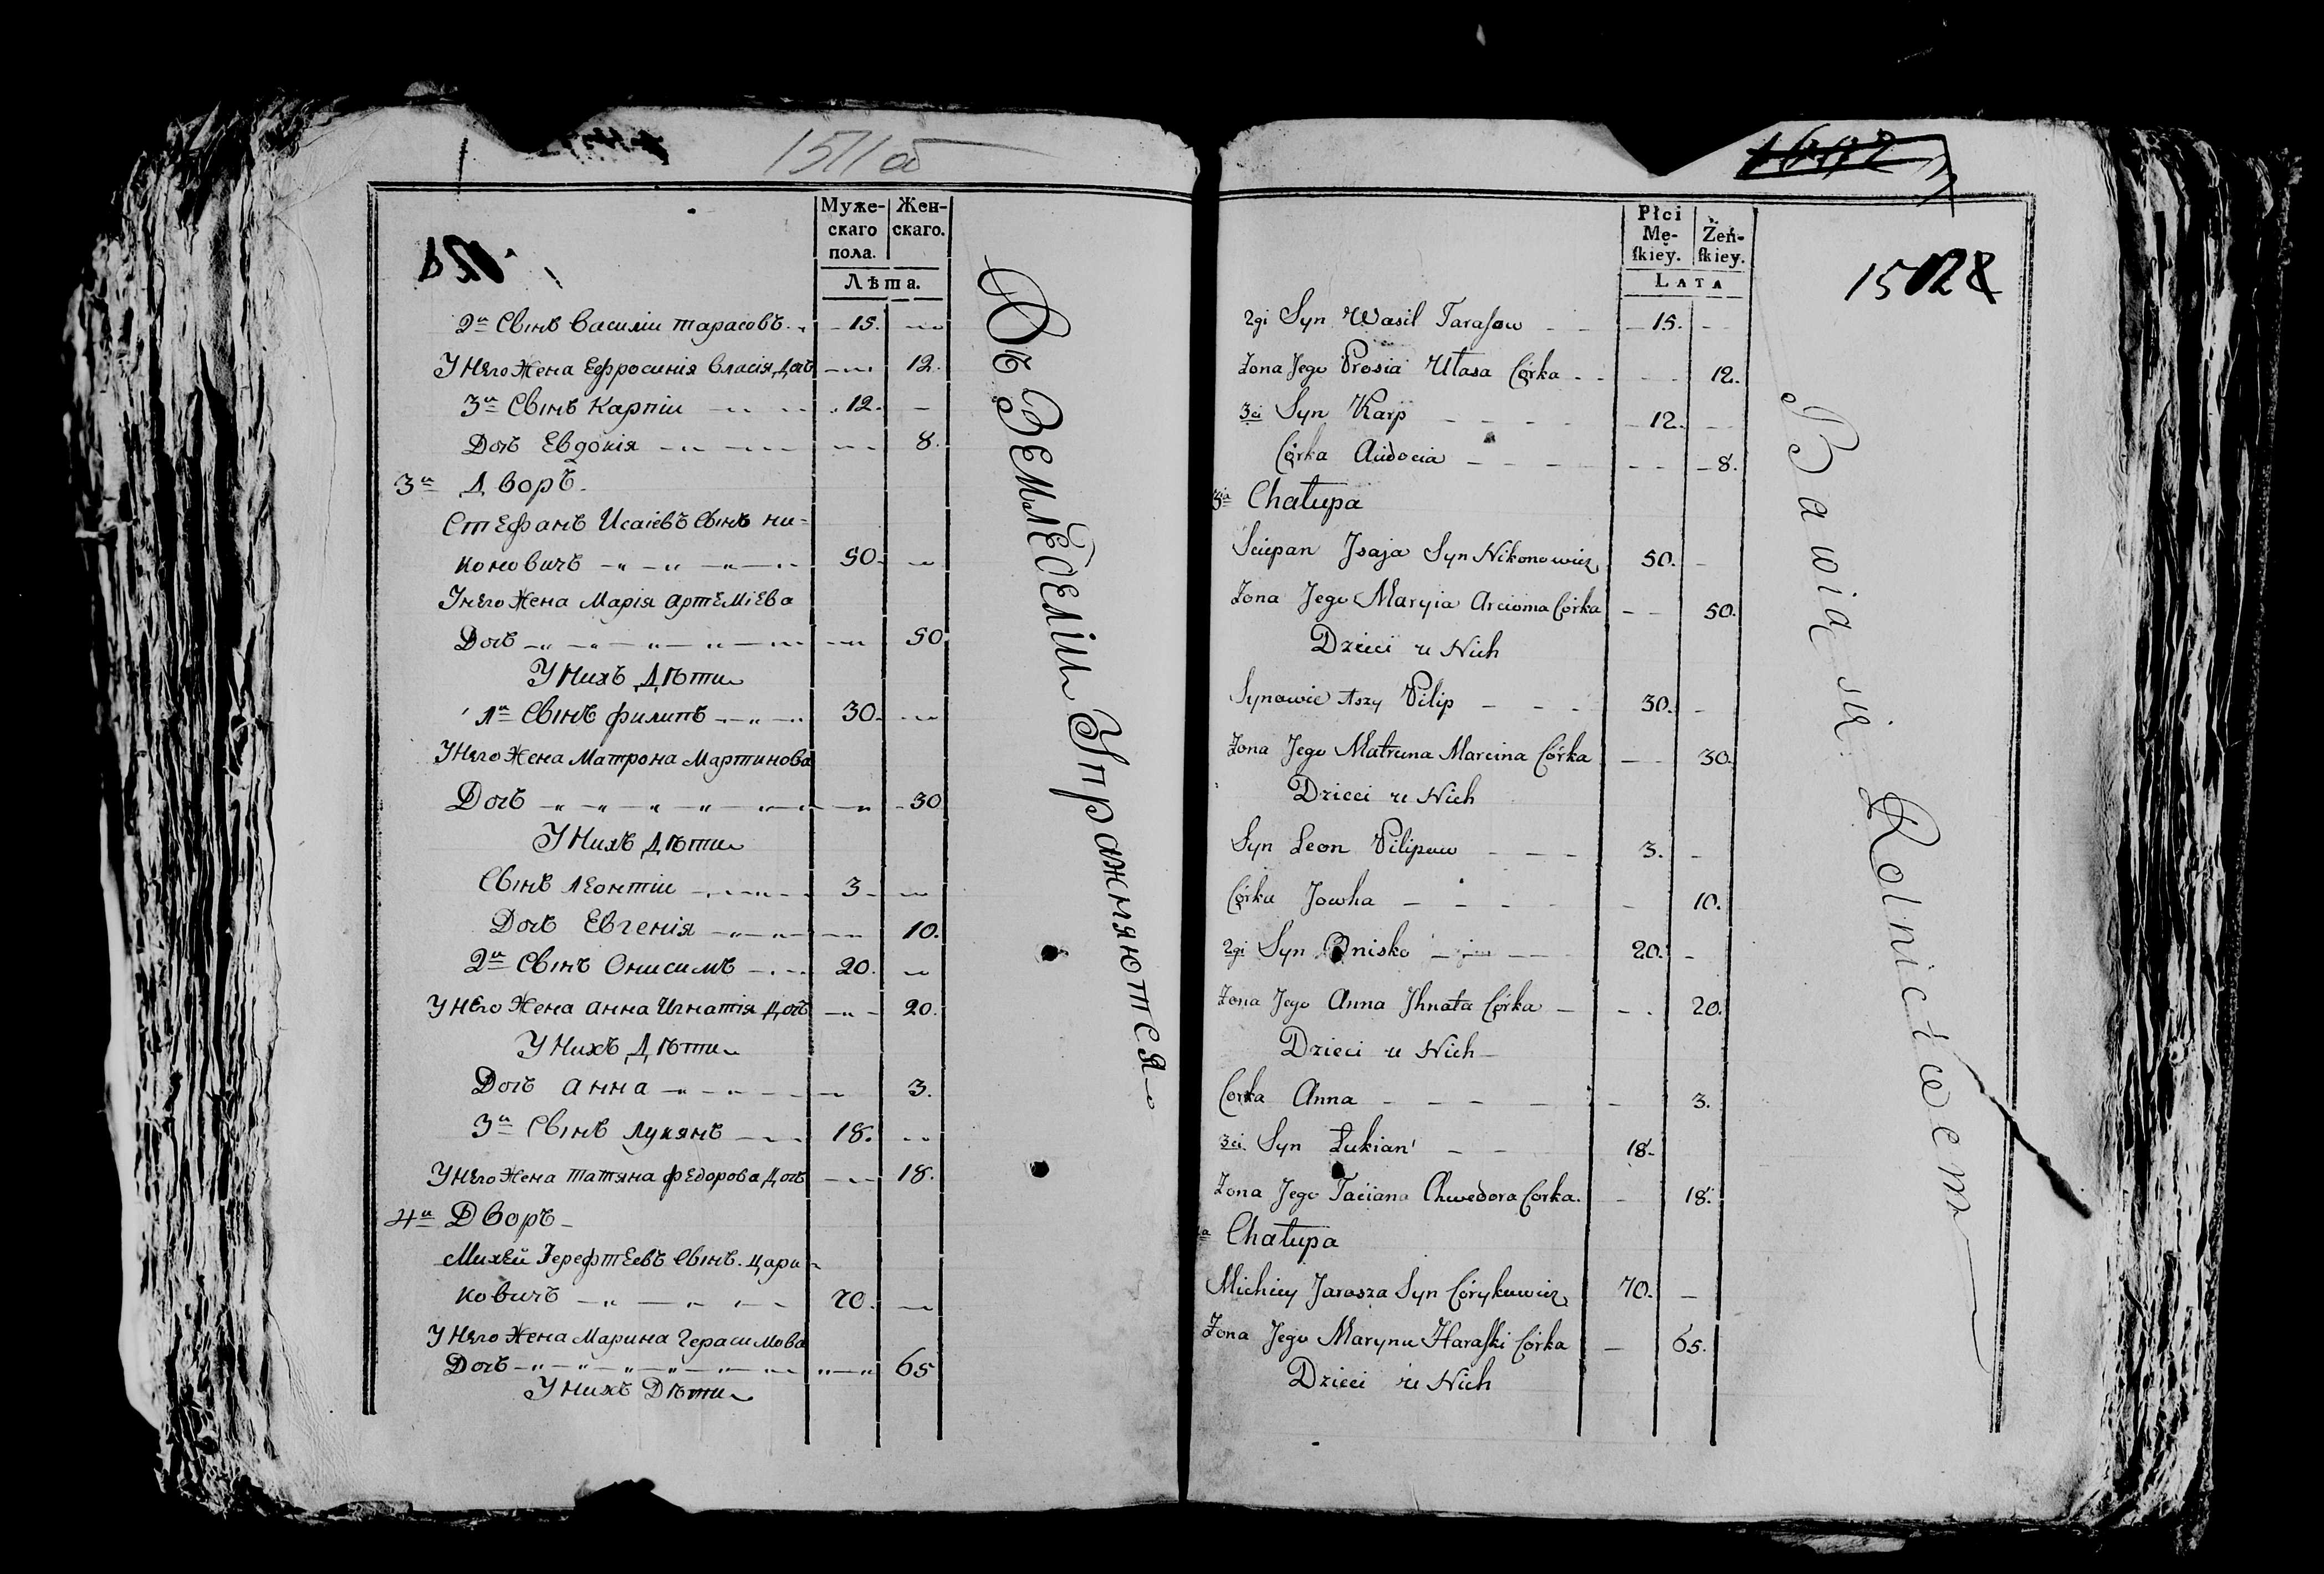 1511об
Муже-
скаго
пола.
Жен-
скаго.
Лѣта.
2й Сынъ Василіи Тарасовъ 15.
У Него Жена Ефросинія Власія Дочь 12.
3й Сынъ Карпіи 12.
Дочь Евдокія 8.
3й Дворъ
Стефанъ Исаіевъ Сынъ Ни-
коновичъ 50.
У Него Жена Марія Артеміева
Дочь 50
У Нихъ Дѣти
1й Сынъ Филипъ 30.
У Него Жена Матрона Мартинова
Дочь 30
У Нихъ Дѣти
Сынъ Леонтіи 3
Дочь Евгенія 10.
2й Сынъ Онисимъ 20.
У Него Жена Анна Игнатія Дочь 20.
У Нихъ Дѣти
Дочь Анна 3.
3й Сынъ Лукянъ 18.
У Него Жена Татяна Федорова Дочь 18.
4й Дворъ
Михей Іерефтеевъ Сынъ Цари-
ковичъ 70.
У Него Жена Марина Герасимова
Дочь 65
У Нихъ Дѣти
Въ Земледеліи Упражняются
Płci
Mę-
ſkiey.
Żeń-
ſkiey.
LATA
2gi Syn Wasil Taraſow 15.
Żona Jego Prosia Ułasa Córka 12.
3ci Syn Karp 12.
Córka Audocia 8.
3a Chałupa
Sciepan Jsaja Syn Nikonowicz 50.
Żona Jego Maryia Arcioma Córka 50.
Dzieci u Nich
Synowie 1szy Pilip 30.
Żona Jego Matruna Marcina Córka 30.
Dzieci u Nich
Syn Leon Pilipow 3.
Córka Jowha 10.
2gi Syn Onisko 20.
Żona Jego Anna Jhnata Córka 20.
Dzieci u Nich
Corka Anna 3.
3ci Syn Łukian 18.
Żona Jego Taciana Chwedora Corka. 18.
Chałupa
Michiey Jarosza Syn Córykowicz 70.
Żona Jego Maryna Haraſki Córka 65.
Dzieci u Nich
Bawią się Rolnictwem